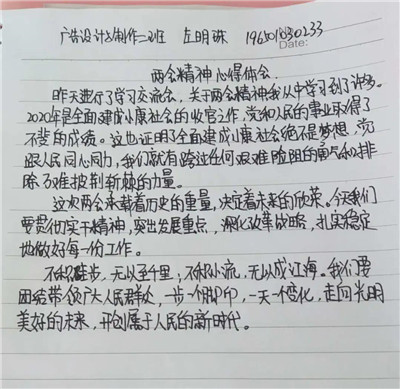 广告设计与制作二班 庄明珠 196501030233
Date:
两会精神心得体会.
昨天进行了学习交流会，关于两会精神我从中学习到了许多。
2020年是全面建成小康社会的收官之作，党和人民的事业取得了
不斐的成绩。这也证明了全面建成小康社会绝不是梦想，党
跟人民同心同力，我们就有跨过任何艰难险阻的勇气和排
除万难披荆斩棘的力量。
这次两会承载着历史的重量，决定着未来的欣荣。今我们
要贯彻实干精神，突出发展重点，深化改革战略，扎实稳定
地做好每一份工作。
不积跬步，无以至千里；不积小流，无以成江海。我们要
团结带领广大人民群处，一步一个脚印，一天一个变化，走向光明
美好的未来，开创属于人民的新时代。